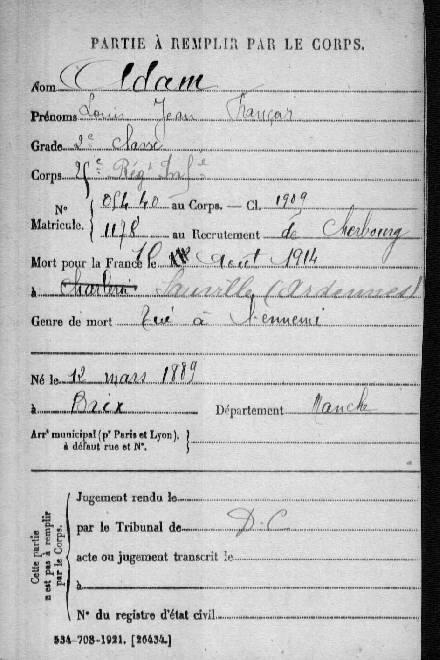 PARTIE À REMPLIR PAR LE CORPS.
Nom Adam
Prénoms Louis Jean François
Grade 2e classe
Corps 25e Régt Infie
N° 054 40 au Corps. — Cl. 1909
Matricule. 1178 au Recrutement de Cherbourg
Mort pour la France le Août 1914
à Sauville (Ardennes)
Genre de mort Tué à l'ennemi
Né le 12 mars 1889
à Brix Département Manche
Arrt municipal (pr Paris et Lyon),
à défaut rue et N°.
Cette partie
n'est pas à remplir
par le Corps.
Jugement rendu le
par le Tribunal de D.C
acte ou jugement transcrit le
à
N° du registre d'état civil
534-708-1921. [26434.]